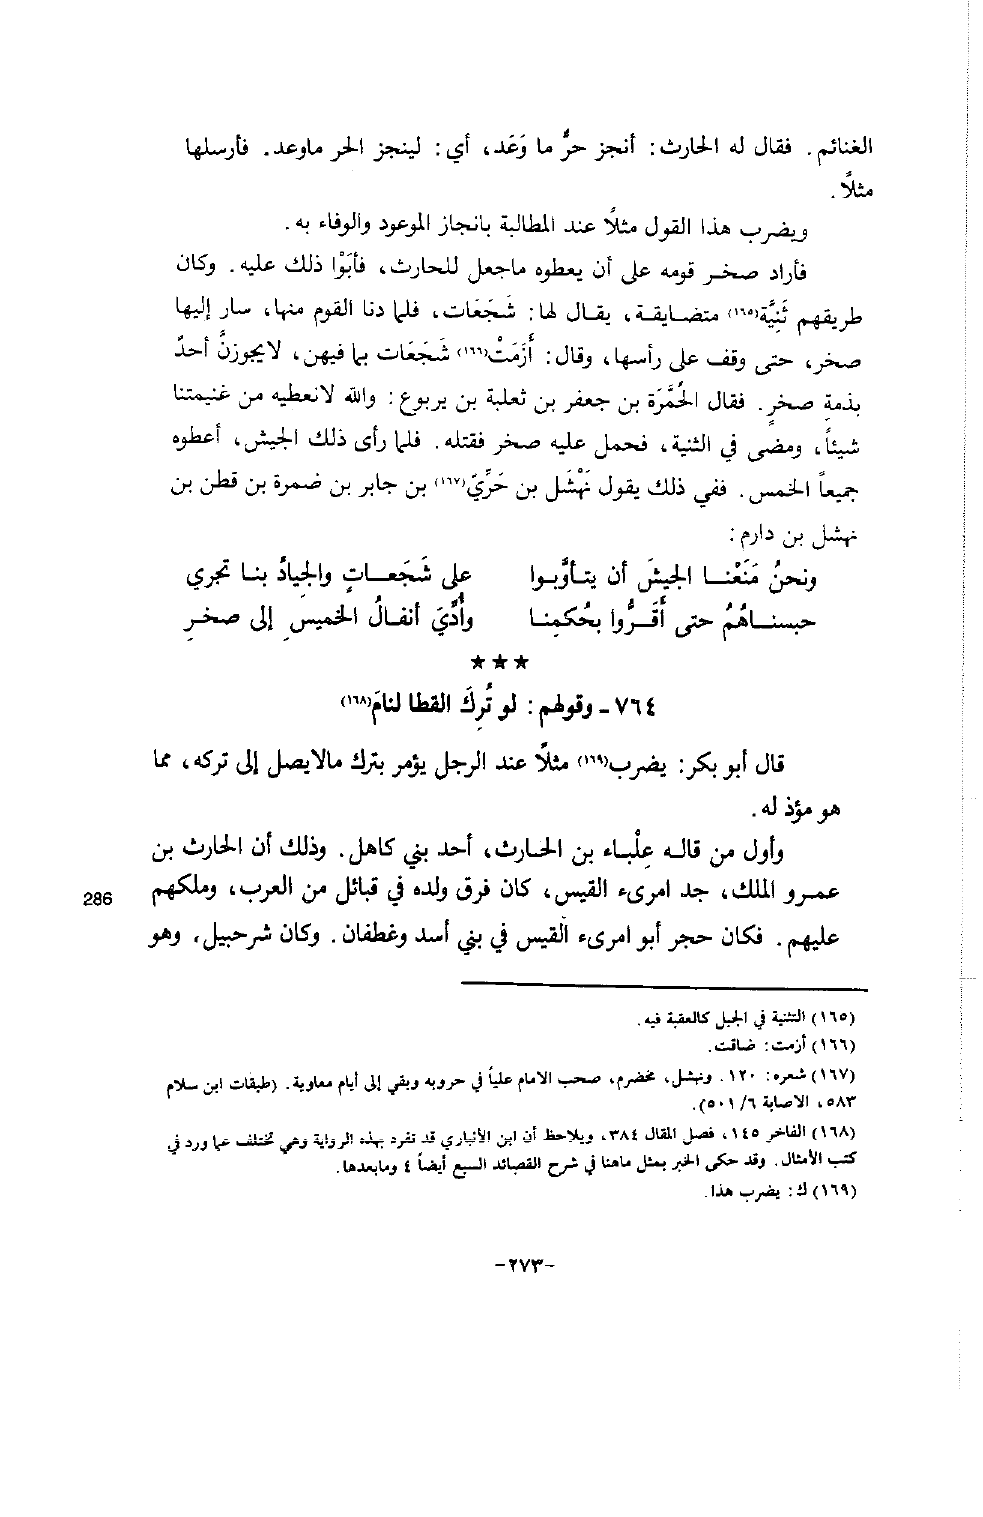 الغنائم. فقال له الحارث: أنجز حرٌّ ما وَعَد، أي: لينجز الحر ماوعد. فأرسلها
مثلاً.
ويضرب هذا القول مثلاً عند المطالبة بانجاز الموعود والوفاء به.
فأراد صخر قومه على أن يعطوه ماجعل للحارث، فأبَوْا ذلك عليه. وكان
طريقهم ثَنِيَّة(١٦٥) متضايقة، يقال لها: شَجَعَات، فلما دنا القوم منها، سار إليها
صخر، حتى وقف على رأسها، وقال: أَزَمَتْ(١٦٦) شَجَعَات بما فيهن، لايجوزنَّ أحدٌ
بذمةِ صخرٍ. فقال الحُمَّرَة بن جعفر بن ثعلبة بن يربوع: والله لانعطيه من غنيمتنا
شيئاً، ومضى في الثنية، فحمل عليه صخر فقتله. فلما رأى ذلك الجيش، أعطوه
جميعاً الخمس. ففي ذلك يقول نَهْشَل بن حَرِّيّ(١٦٧) بن جابر بن ضمرة بن قطن بن
نهشل بن دارم:
ونحنُ مَنَعْنا الجيشَ أن يتأوَّبوا على شَجَعاتٍ والجيادُ بنا تجري
حبسناهُمُ حتى أقَرُّوا بحُكمِنا وأُدِّيَ أنفالُ الخميسِ إلى صخرِ
★★★
٧٦٤ - وقولهم: لو تُرِكَ القطا لنامَ(١٦٨)
قال أبو بكر: يضرب(١٦٩) مثلاً عند الرجل يؤمر بترك مالايصل إلى تركه، مما
هو مؤذ له.
وأول من قاله عِلْباء بن الحارث، أحد بني كاهل. وذلك أن الحارث بن
عمرو الملك، جد امرىء القيس، كان فرق ولده في قبائل من العرب، وملكهم
286
عليهم. فكان حجر أبو امرىء القيس في بني أسد وغطفان. وكان شرحبيل، وهو
(١٦٥) الثنية في الجبل كالعقبة فيه.
(١٦٦) أزمت: ضاقت.
(١٦٧) شعره: ١٢٠. ونهشل، مخضرم، صحب الامام علياً في حروبه وبقي إلى أيام معاوية. (طبقات ابن سلام
٥٨٣، الاصابة ٦/ ٥٠١).
(١٦٨) الفاخر ١٤٥، فصل المقال ٣٨٤، ويلاحظ أن ابن الأنباري قد تفرد بهذه الرواية وهي تختلف عما ورد في
كتب الأمثال. وقد حكى الخبر بمثل ماهنا في شرح القصائد السبع أيضاً ٤ ومابعدها.
(١٦٩) ك: يضرب هذا.
-٢٧٣-